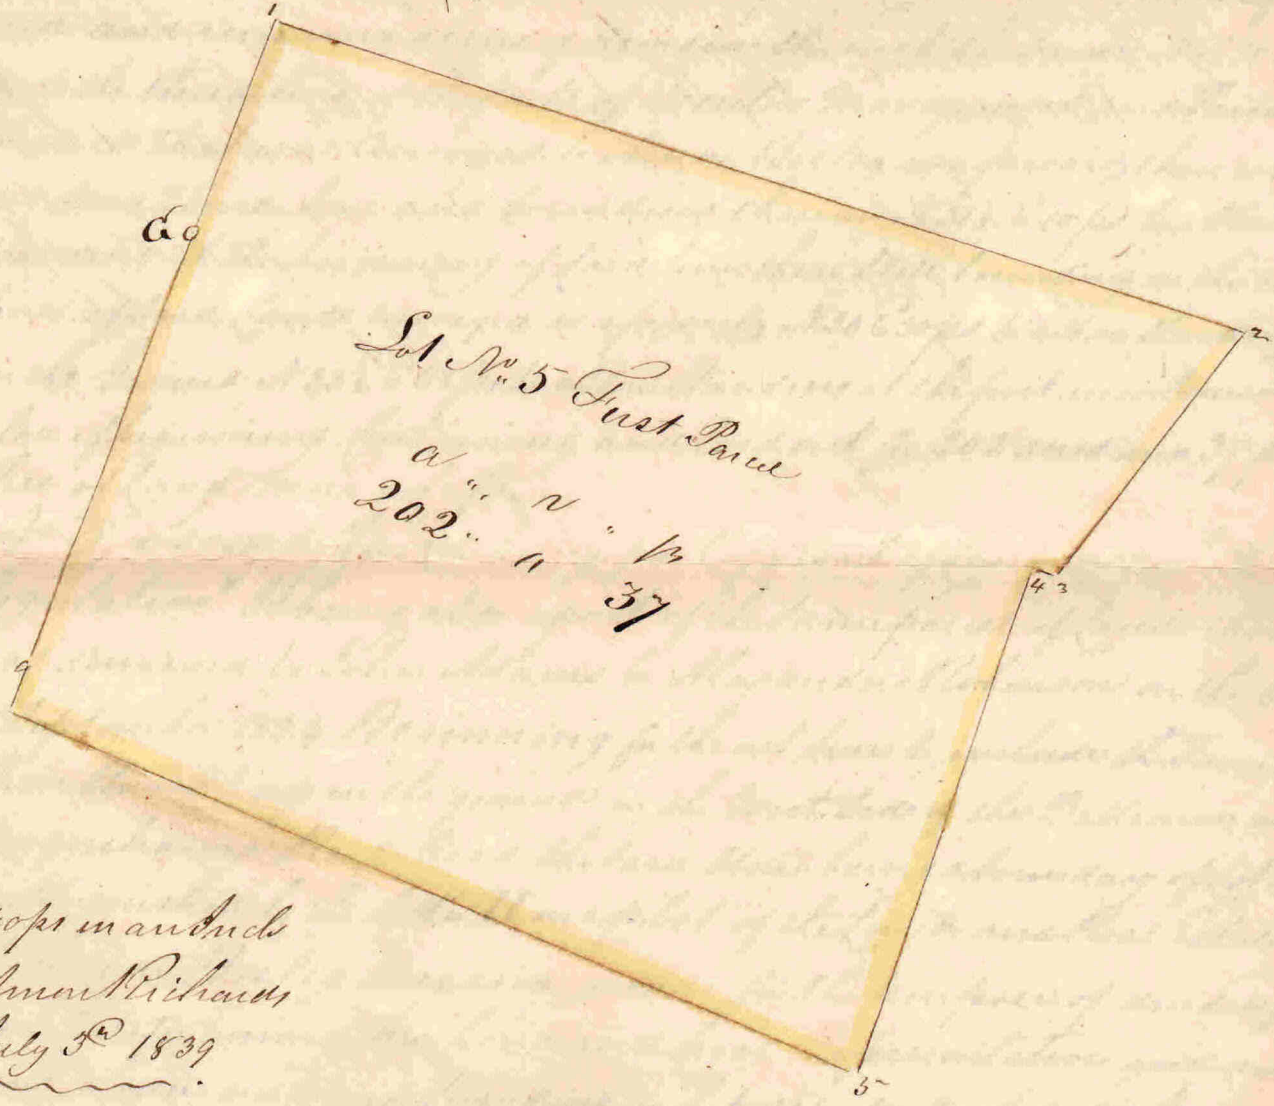 1
2
G o
Lot No. 5 First Parcel
a " r " p
202 " " " 37
4 3
9
in an Inch
Richards
July 5th 1839
5